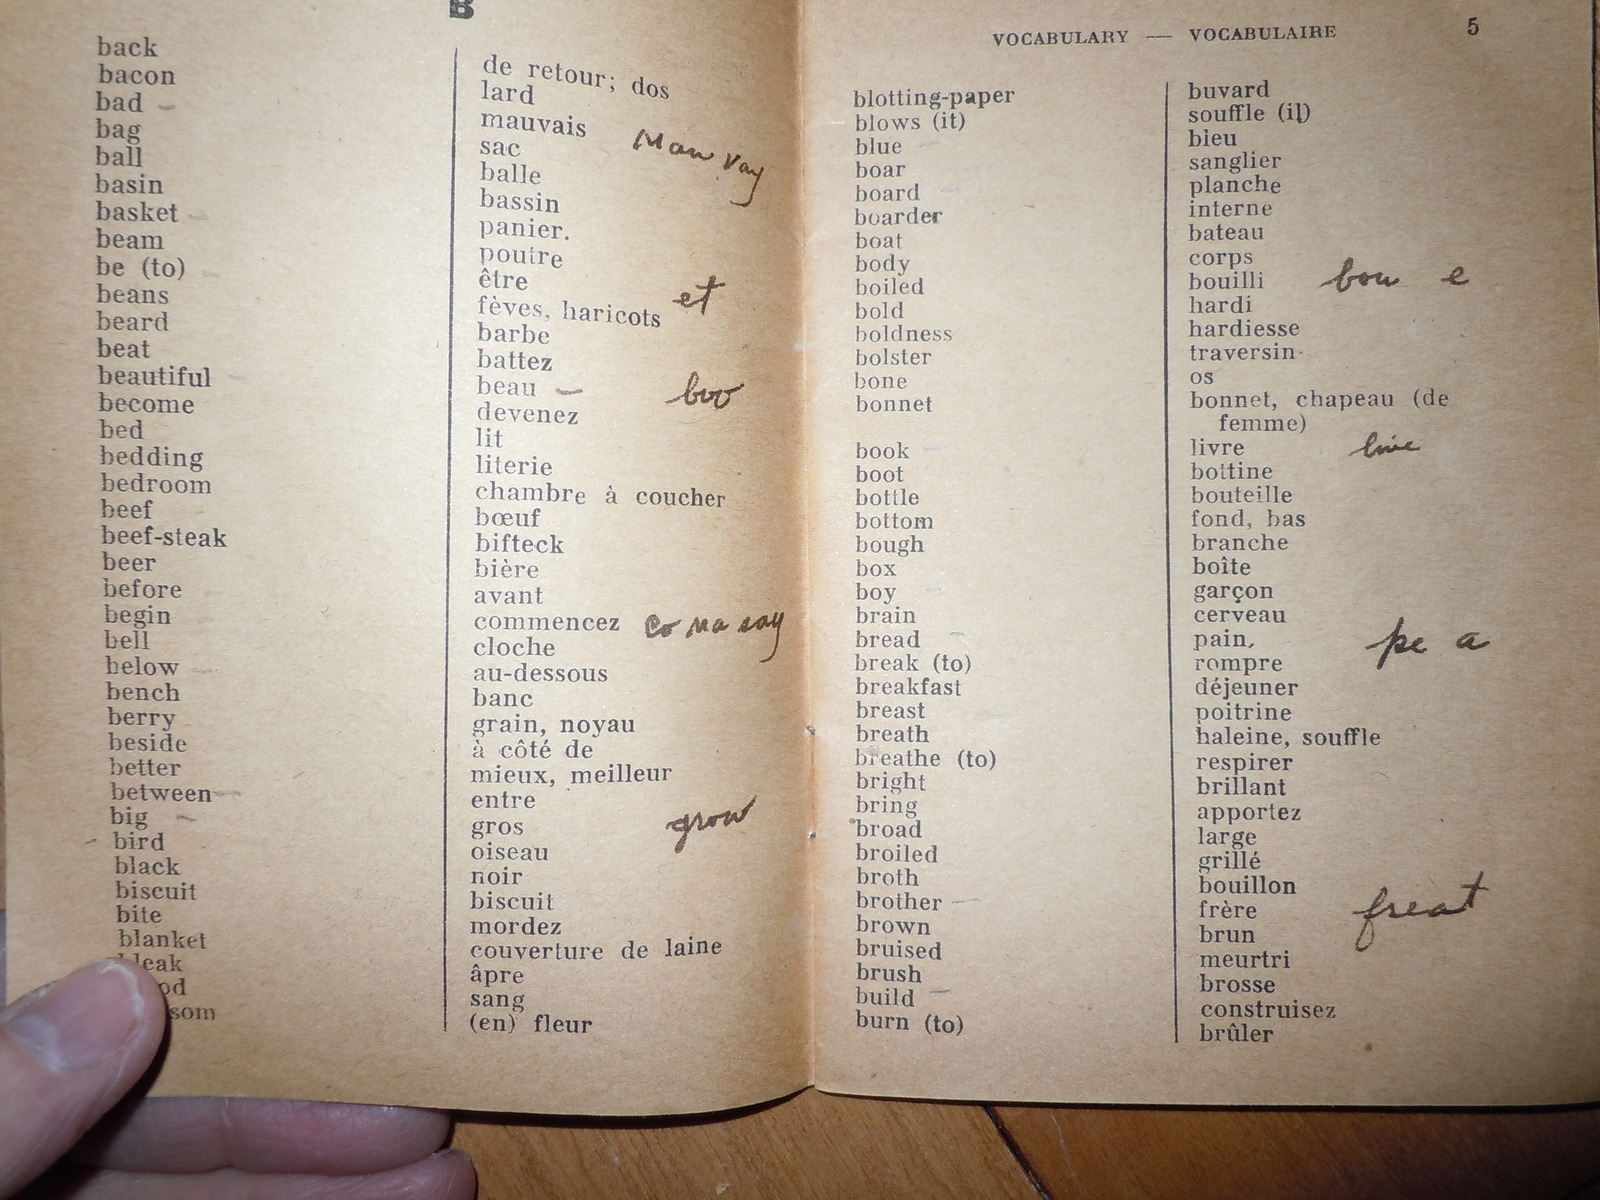 B
back de retour; dos
bacon lard
bad mauvais Mau vay
bag sac
ball balle
basin bassin
basket panier.
beam poutre
be (to) être et
beans fèves, haricots
beard barbe
beat battez
beautiful beau boo
become devenez
bed lit
bedding literie
bedroom chambre à coucher
beef bœuf
beef-steak bifteck
beer bière
before avant
begin commencez co ma say
bell cloche
below au-dessous
bench banc
berry grain, noyau
beside à côté de
better mieux, meilleur
between entre
big gros grow
bird oiseau
black noir
biscuit biscuit
bite mordez
blanket couverture de laine
bleak âpre
od sang
som (en) fleur
VOCABULARY — VOCABULAIRE 5
blotting-paper buvard
blows (it) souffle (il)
blue bleu
boar sanglier
board planche
boarder interne
boat bateau
body corps
boiled bouilli bou e
bold hardi
boldness hardiesse
bolster traversin
bone os
bonnet bonnet, chapeau (de
femme)
book livre
boot bottine
bottle bouteille
bottom fond, bas
bough branche
box boîte
boy garçon
brain cerveau
bread pain, pe a
break (to) rompre
breakfast déjeuner
breast poitrine
breath haleine, souffle
breathe (to) respirer
bright brillant
bring apportez
broad large
broiled grillé
broth bouillon
brother frère freat
brown brun
bruised meurtri
brush brosse
build construisez
burn (to) brûler